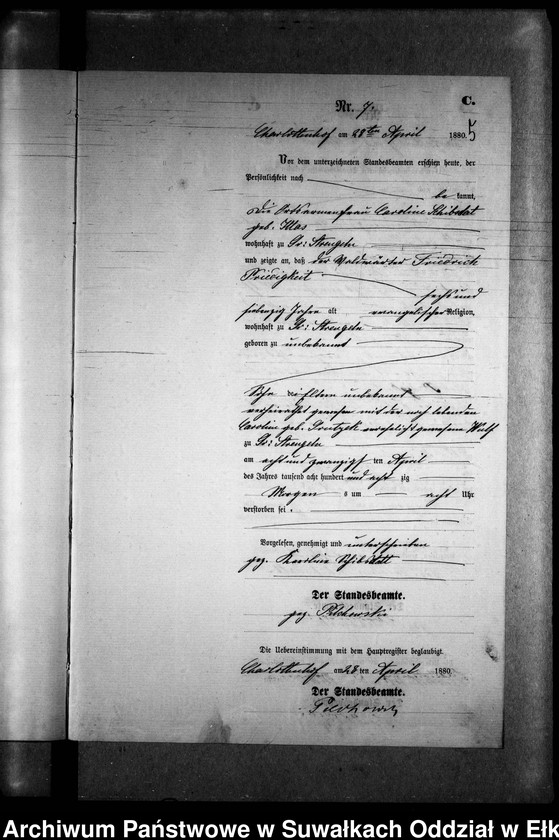 C.
Nr. 7.
5
Charlottenhof am 28ten April 1880.
Vor dem unterzeichneten Standesbeamten erschien heute, der
Persönlichkeit nach
be kannt,
die Ortsarmenfrau Caroline
geb.
wohnhaft zu Gr: Strengeln
und zeigte an, daß der Waldwärter Friedrich
Friedigkeit
sechs und
siebenzig Jahre alt evangelischer Religion,
wohnhaft zu Gr: Strengeln
geboren zu unbekannt
Sohn der Eltern unbekannt
verheirathet gewesen mit der noch lebenden
Caroline geb. gewesene
zu Gr: Strengeln
am acht und zwanzigsten April
des Jahres tausend acht hundert und acht zig
Morgen s um acht Uhr
verstorben sei.
Vorgelesen, genehmigt und unterschrieben
gez. Karoline
Der Standesbeamte.
gez.
Die Uebereinstimmung mit dem Hauptregister beglaubigt.
Charlottenhof am 28 ten April 1880.
Der Standesbeamte.
Archiwum Państwowe w Suwałkach Oddział w Ełk